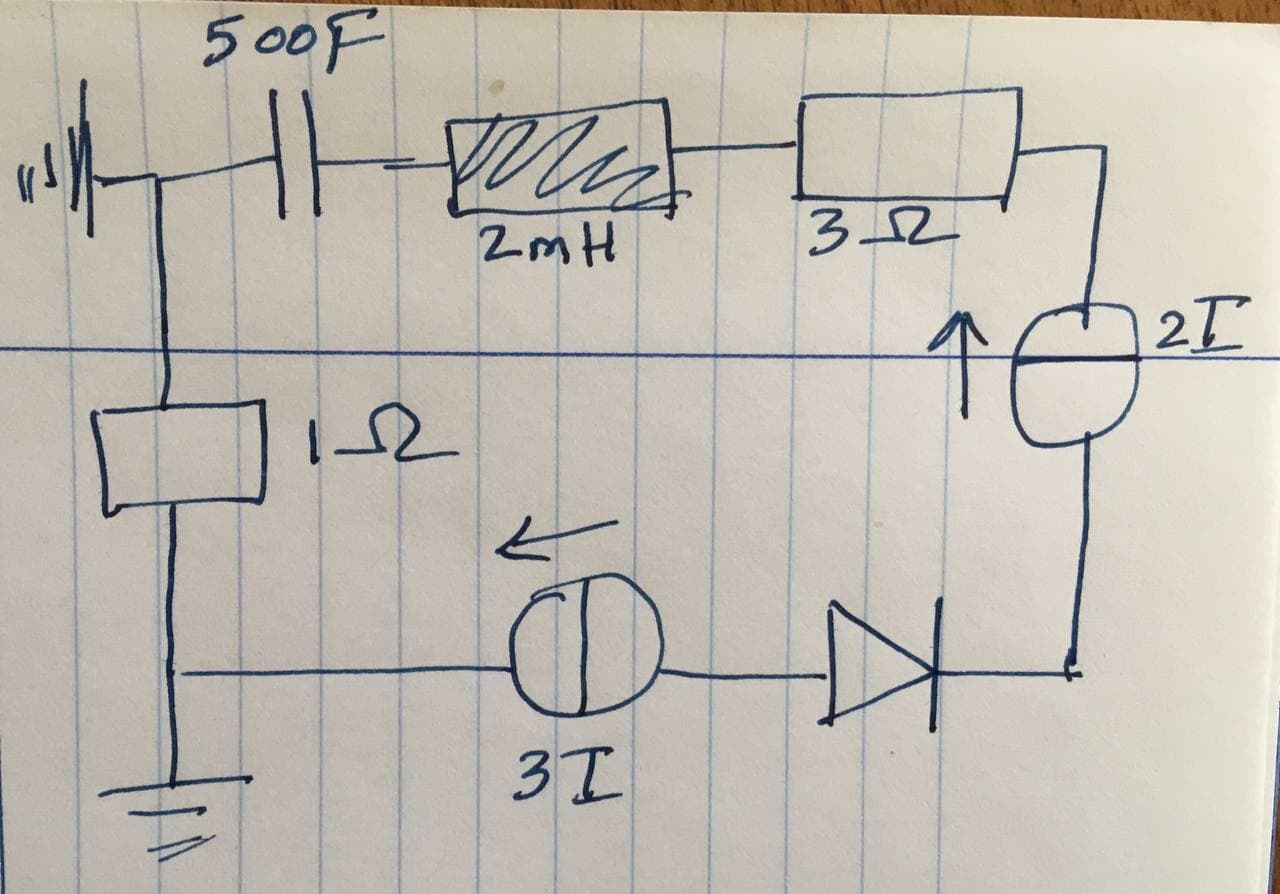 500F
2mH
3Ω
2I
1Ω
3I